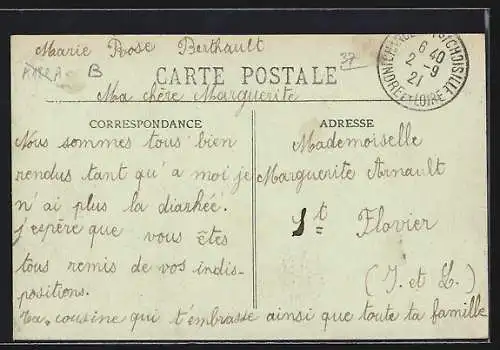 Marie Rose Berthault
37
B
CARTE POSTALE
Ma chère Marguerite
6 40
2 - 9
21
INDRE ET LOIRE
CORRESPONDANCE
Nous sommes tous bien
rendus tant qu'a moi je
n'ai plus la diarhéé.
j'espère que vous êtes
tous remis de vos indis-
positions.
Ta cousine qui t'embrasse ainsi que toute ta famille
ADRESSE
Mademoiselle
Marguerite Arnault
St Flovier
(I. et L.)